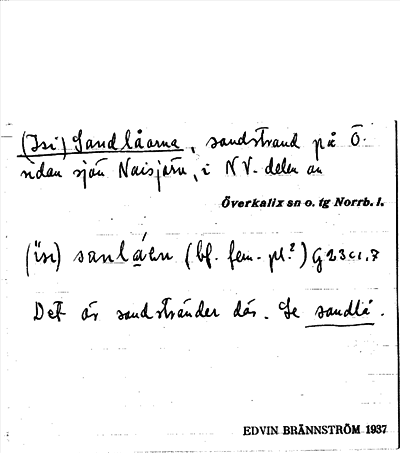 (Isi) Sandlåorna, sandstrand på Ö.
sidan sjön Naisjärv, i NV. delen av
Överkalix sn o. tg Norrb. l.
(isi) sanláen (bf. fem. pl.?) G23c1.7
Det är sandstränder där. Se sandlå.
EDVIN BRÄNNSTRÖM 1937